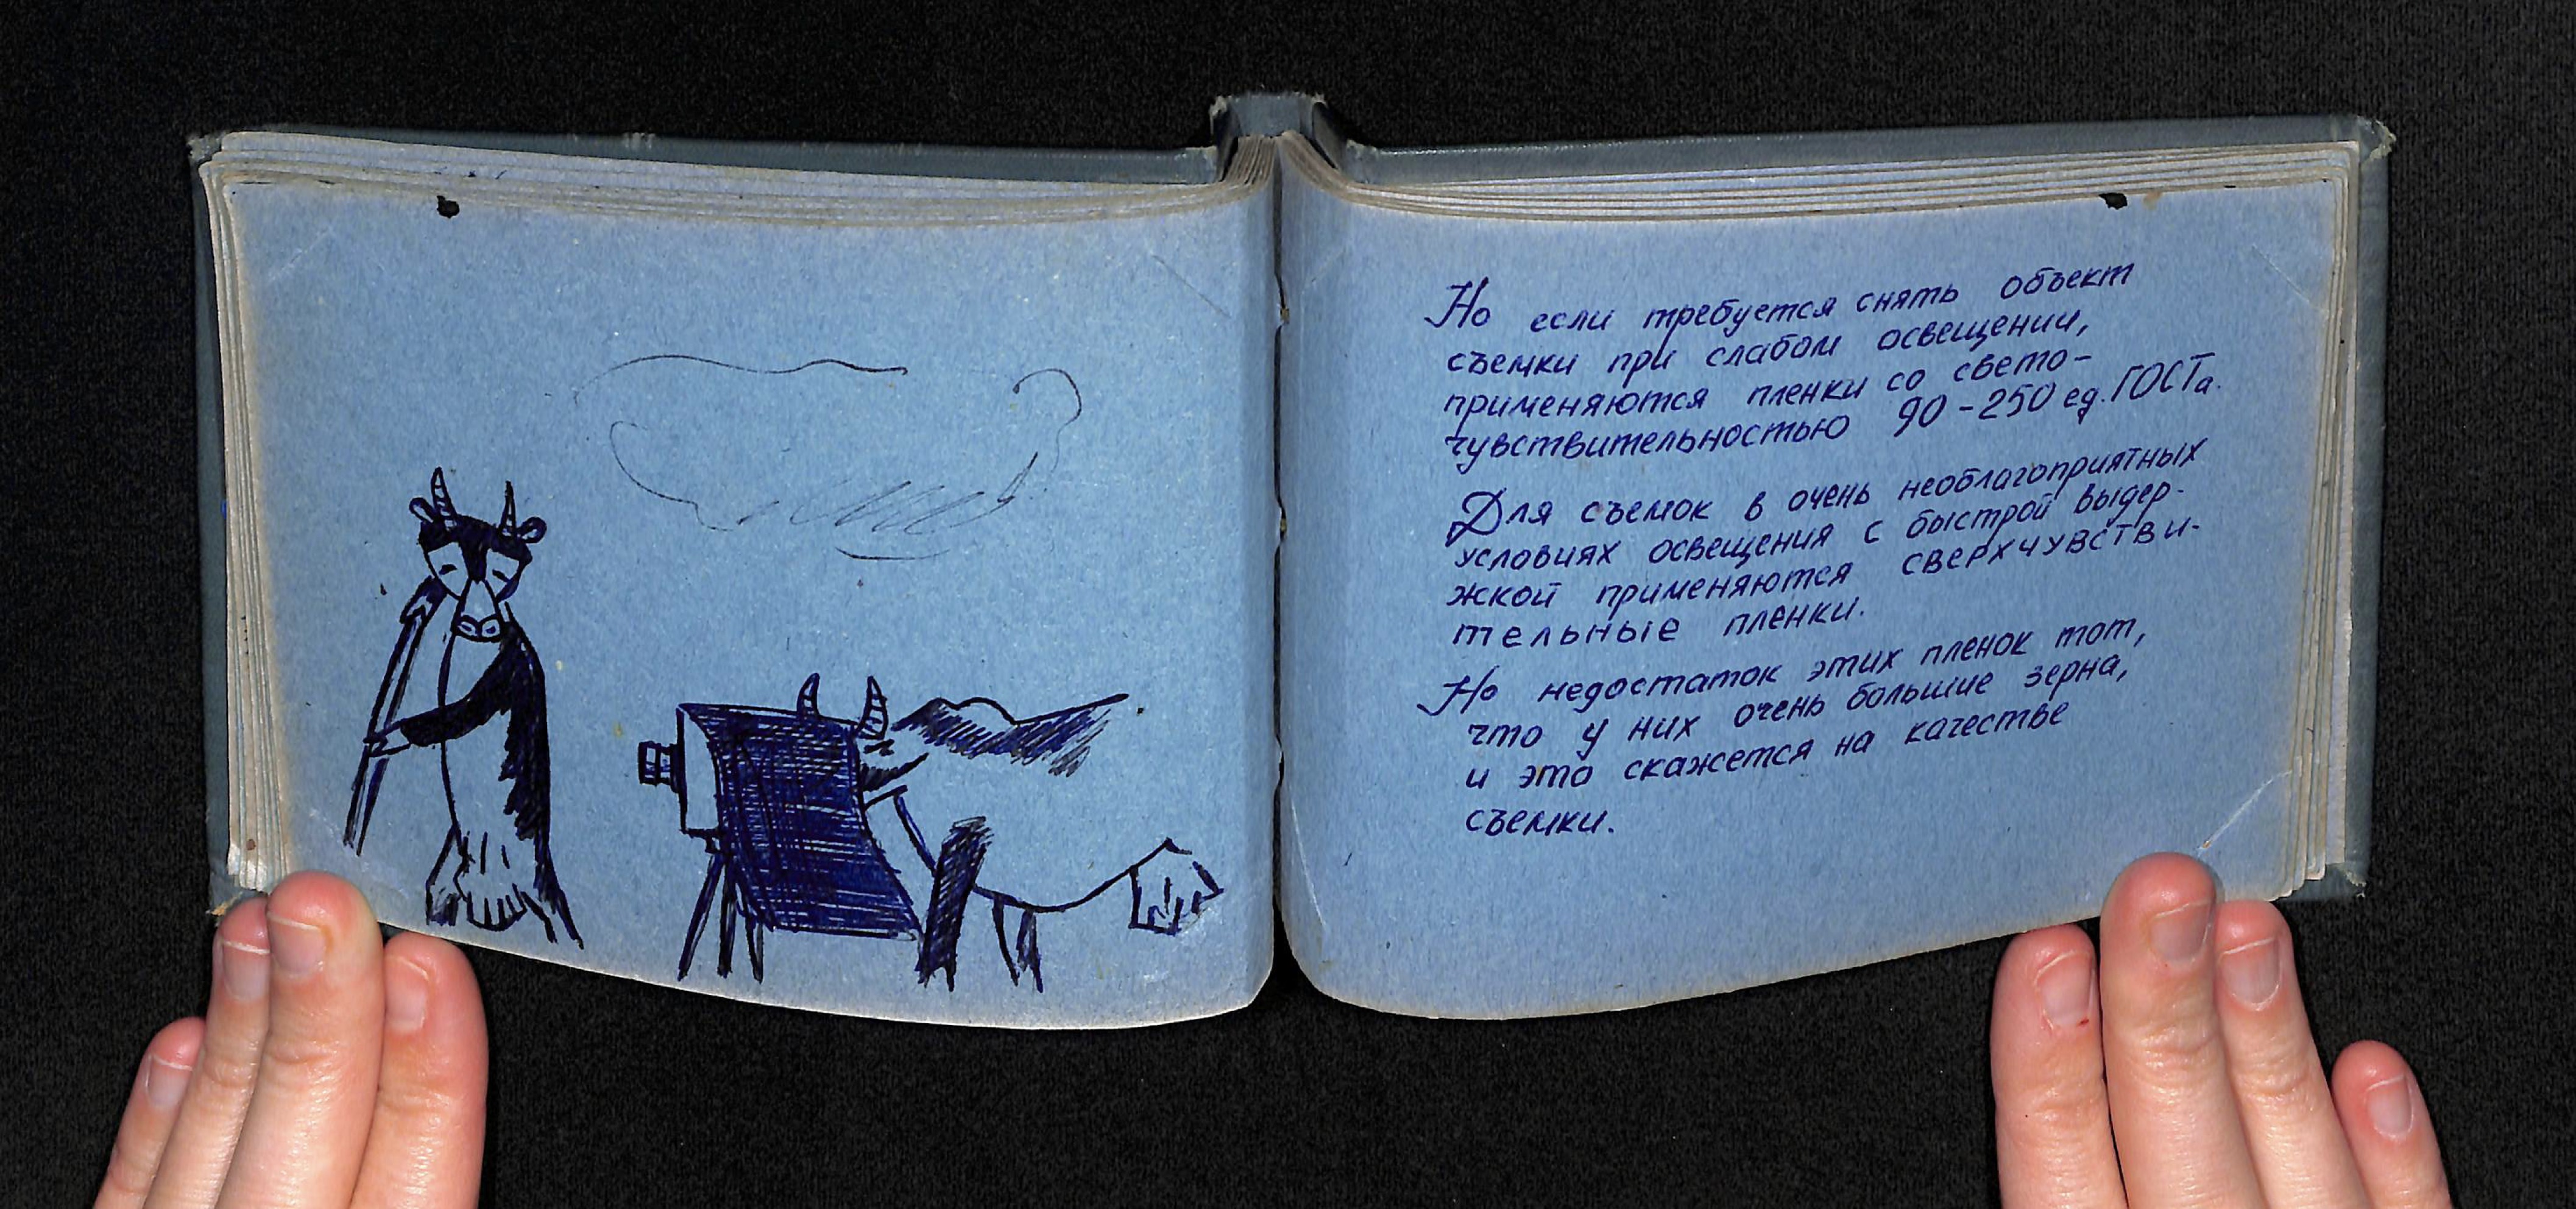 Но если требуется снять объект
съемки при слабом освещении,
применяются пленки со свето-
чувствительностью 90-250 ед. ГОСТа.
Для съемок в очень неблагоприятных
условиях освещения с быстрой выдер-
жкой применяются сверхчувстви-
тельные пленки.
Но недостаток этих пленок тот,
что у них очень большие зерна,
и это скажется на качестве
съемки.